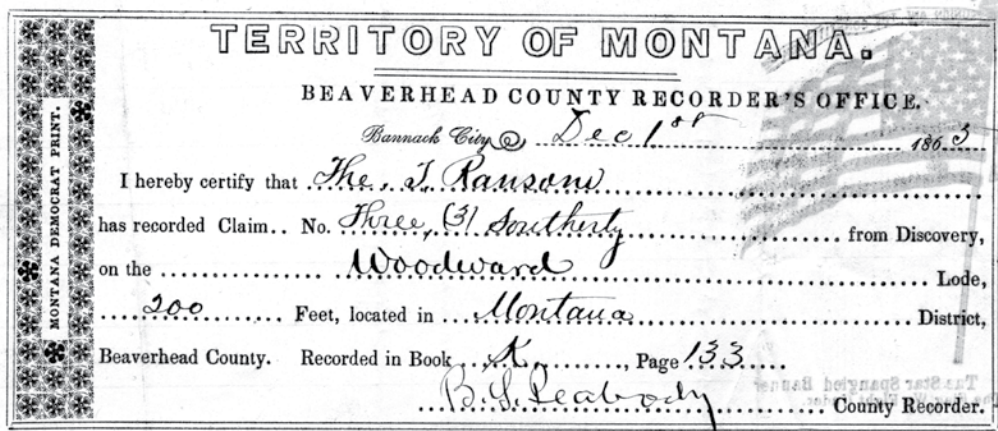 TERRITORY OF MONTANA.
BEAVERHEAD COUNTY RECORDER'S OFFICE.
Bannack City, Dec 1st 1865
I hereby certify that The. T. Ransom
has recorded Claim.. No. Three, (3) Southerly from Discovery,
on the Woodward Lode,
200 Feet, located in Montana District,
Beaverhead County. Recorded in Book K, Page 133
B. S. Peabody County Recorder.
MONTANA DEMOCRAT PRINT.
The Star Spangled Banner